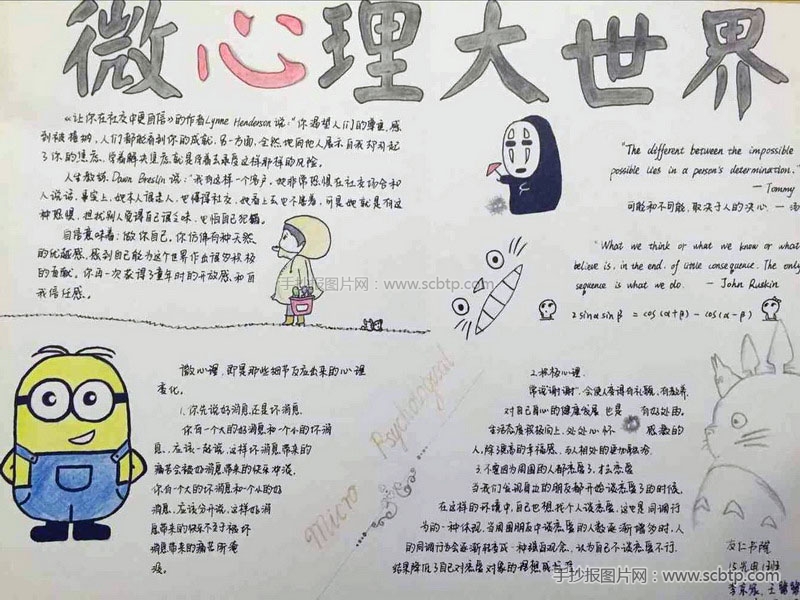 微心理大世界
《让你在社交中更自信》的作者Lynne Henderson说:"你渴望人们的尊重,感
到被接纳,人们都能看到你的成就,另一方面,全然地向他人展示自我却引起
了你的焦虑,
人生教练Dawn Breslin说:"我有这样一个客户,她非常恐惧在社交场合和
人说话,事实上,她本人很迷人,也懂得社交,她看上去也不害羞,可是她就是有这
种恐惧,担忧别人觉得自己很乏味,也怕自己犯错。
自信意味着:做你自己,你仿佛有种天然
的优越感,感到自己能为这个世界作出很多积极
的贡献,你再一次获得了童年时的开放感和自
我信任感。
"The different between the impossible
possible lies in a person's determination."
— Tommy
可能和不可能,取决于人的决心 —
"What we think or what we know or what
believe is, in the end, of little consequence. The only
sequence is what we do. — John Ruskin
2 sinα sinβ = cos(α+β) - cos(α-β)
手抄报图片网:www.scbtp.com
微心理,即是那些细节反应出来的心理
变化。
1.你先说好消息,还是坏消息。
你有一个大的好消息和一个小的坏消
息,应该一起说,这样坏消息带来的
痛苦会被好消息带来的快乐冲淡,
你有一个大的坏消息和一个小的好
消息,应该分开说,这样好消
息带来的快乐不至于被坏
消息带来的痛苦所淹
没。
Micro Psychological
2.积极心理。
常说"谢谢",会使人变得有礼貌,有教养,
对自己身心的健康发展也是有好处的。
生活态度积极向上,处处心怀感激的
人,除提高的幸福感,与人相处的更加融洽。
3.不要因为周围的人都恋爱了,才去恋爱
当我们发现身边的朋友都开始谈恋爱了的时候,
在这样的环境中,自己也想找个人谈恋爱,这也是同调行
为的一种体现,当周围朋友中谈恋爱的人数逐渐增多时,人
的同调行为会逐渐转变成一种强迫观念,认为自己不谈恋爱不行,
结果降低了自己对恋爱对象的理想或
友仁书院
15光电1班
手抄报图片网:www.scbtp.com